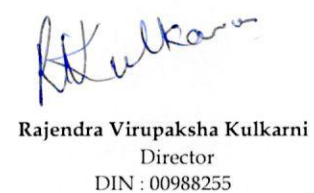 RKulkarni
Rajendra Virupaksha Kulkarni
Director
DIN : 00988255